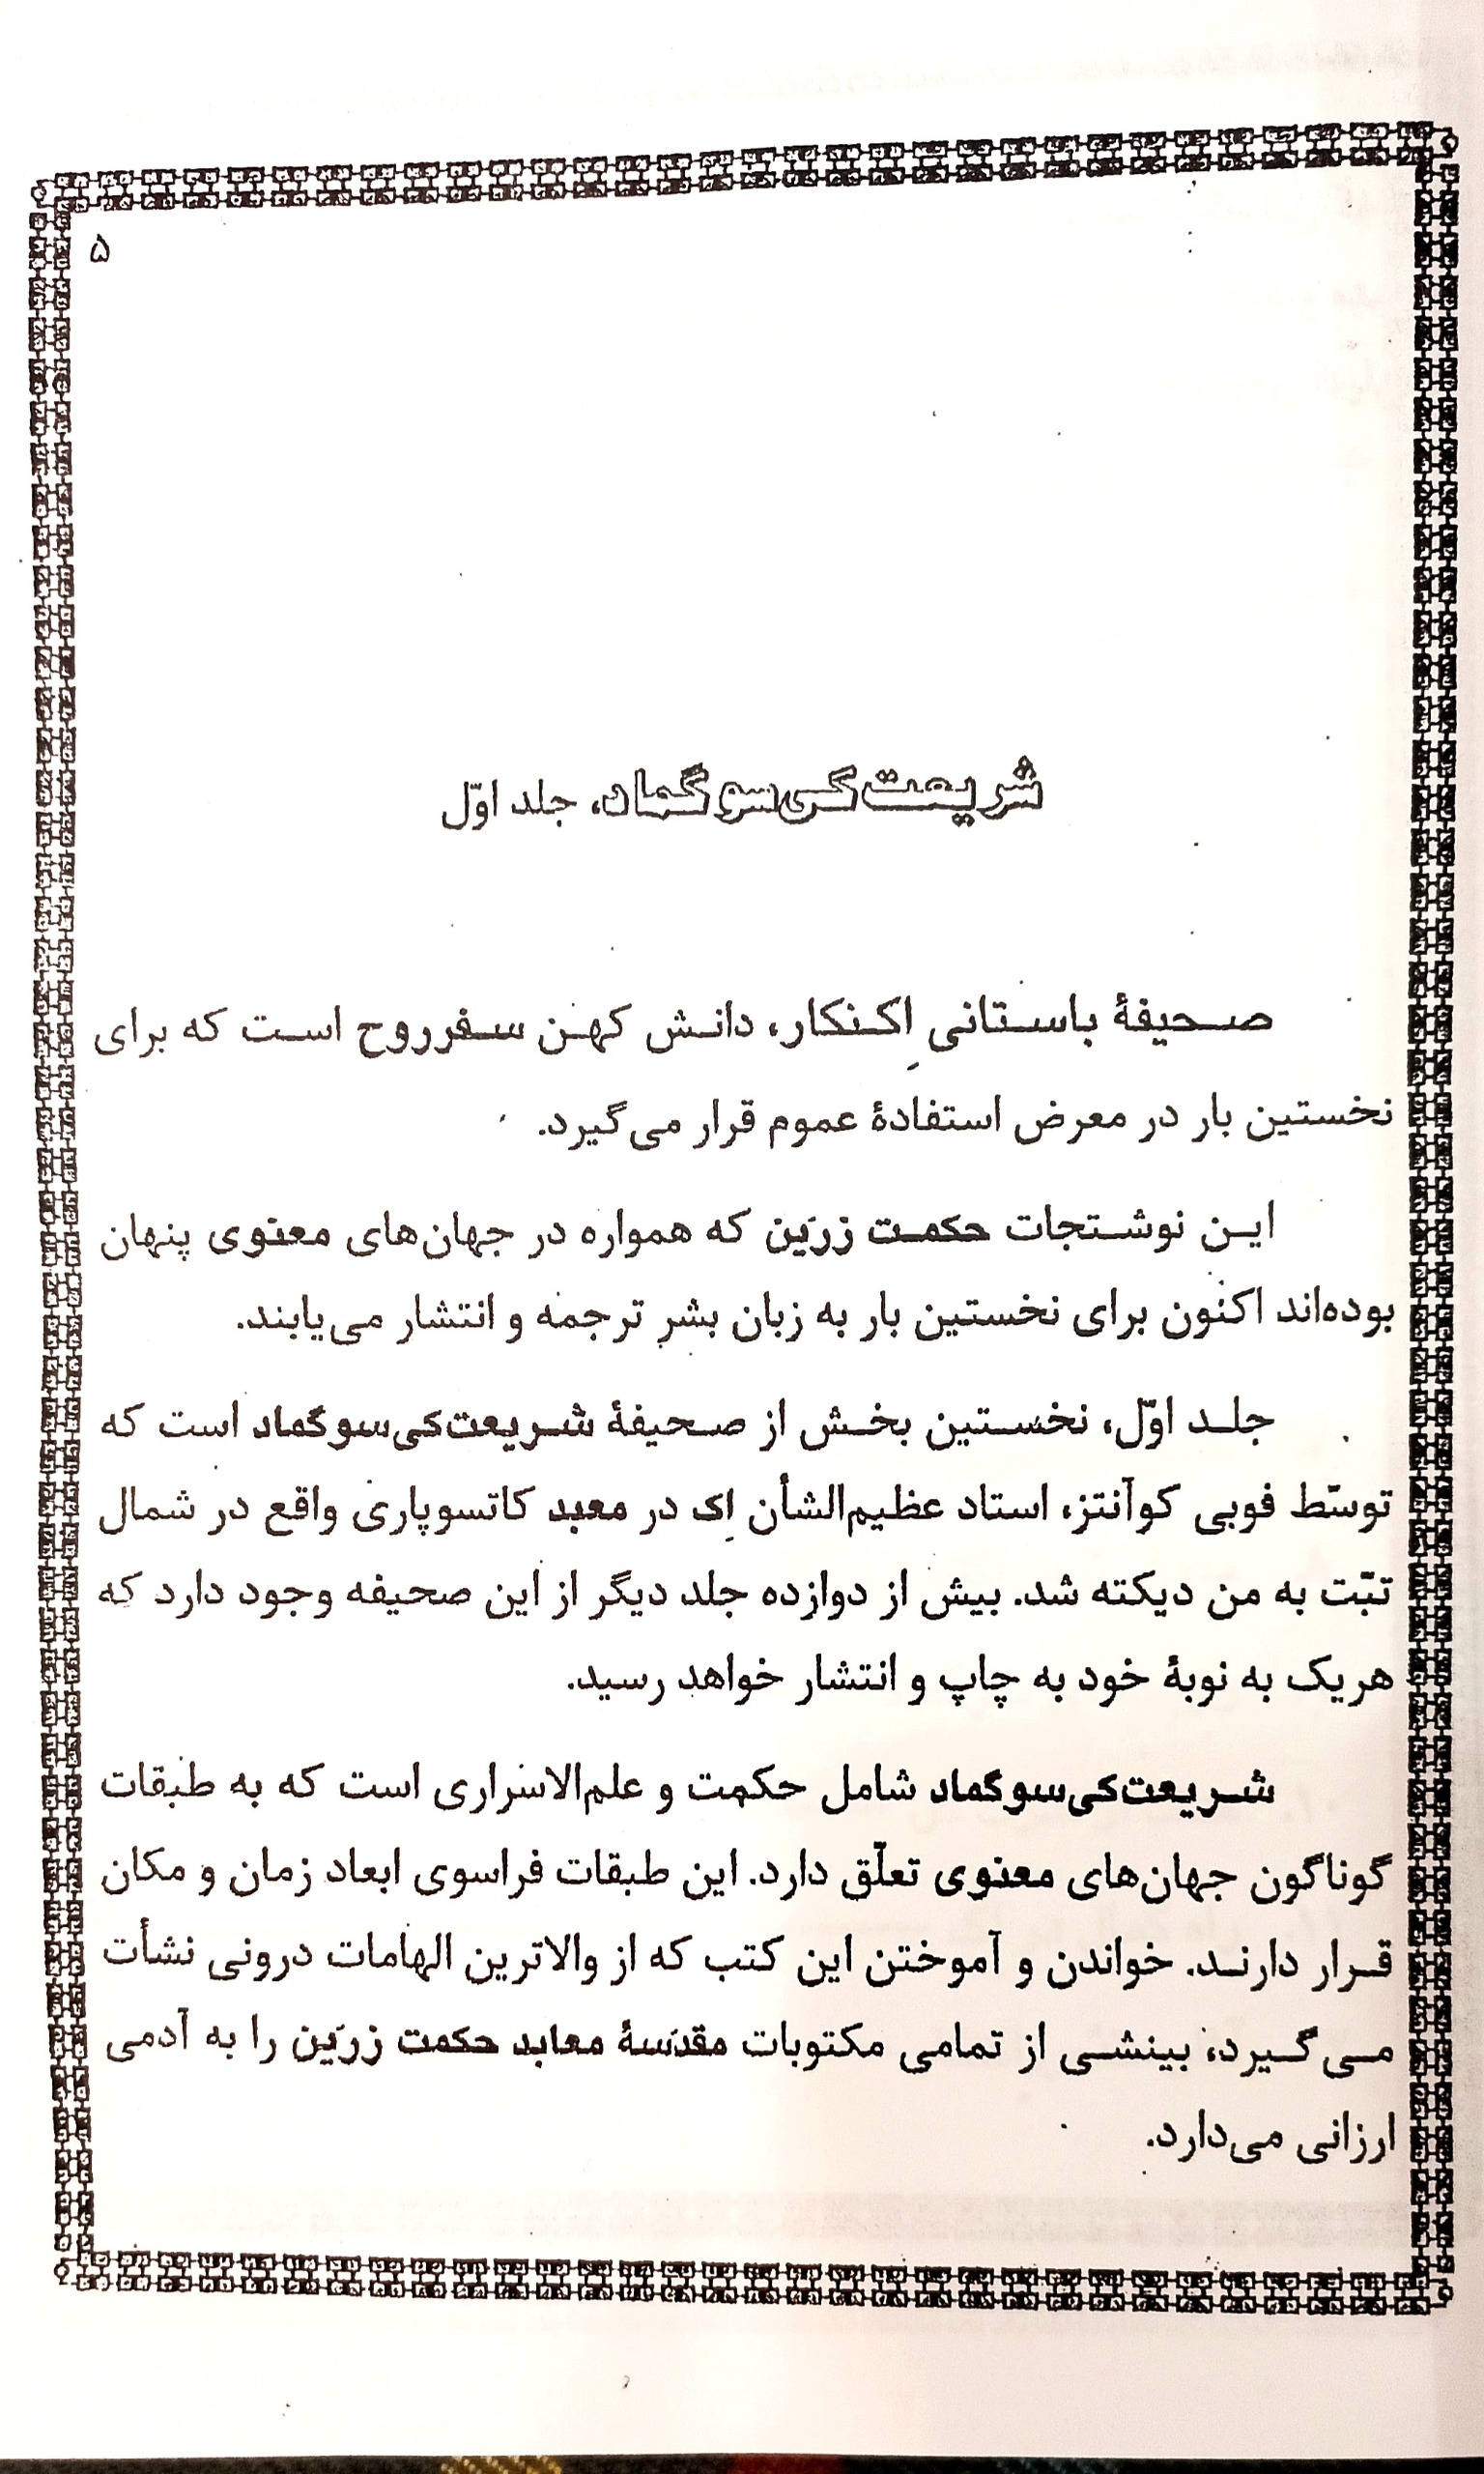 ۵
شریعت‌کی‌سوگماد، جلد اوّل
صحیفهٔ باستانی اِکنکار، دانش کهن سفرروح است که برای
نخستین بار در معرض استفادهٔ عموم قرار می‌گیرد.
این نوشتجات حکمت زرّین که همواره در جهان‌های معنوی پنهان
بوده‌اند اکنون برای نخستین بار به زبان بشر ترجمه و انتشار می‌یابند.
جلد اوّل، نخستین بخش از صحیفهٔ شریعت‌کی‌سوگماد است که
توسّط فوبی کوآنتز، استاد عظیم‌الشأن اِک در معبد کاتسوپاری واقع در شمال
تبّت به من دیکته شد. بیش از دوازده جلد دیگر از این صحیفه وجود دارد که
هریک به نوبهٔ خود به چاپ و انتشار خواهد رسید.
شریعت‌کی‌سوگماد شامل حکمت و علم‌الاسراری است که به طبقات
گوناگون جهان‌های معنوی تعلّق دارد. این طبقات فراسوی ابعاد زمان و مکان
قرار دارند. خواندن و آموختن این کتب که از والاترین الهامات درونی نشأت
می‌گیرد، بینشی از تمامی مکتوبات مقدّسهٔ معابد حکمت زرّین را به آدمی
ارزانی می‌دارد.